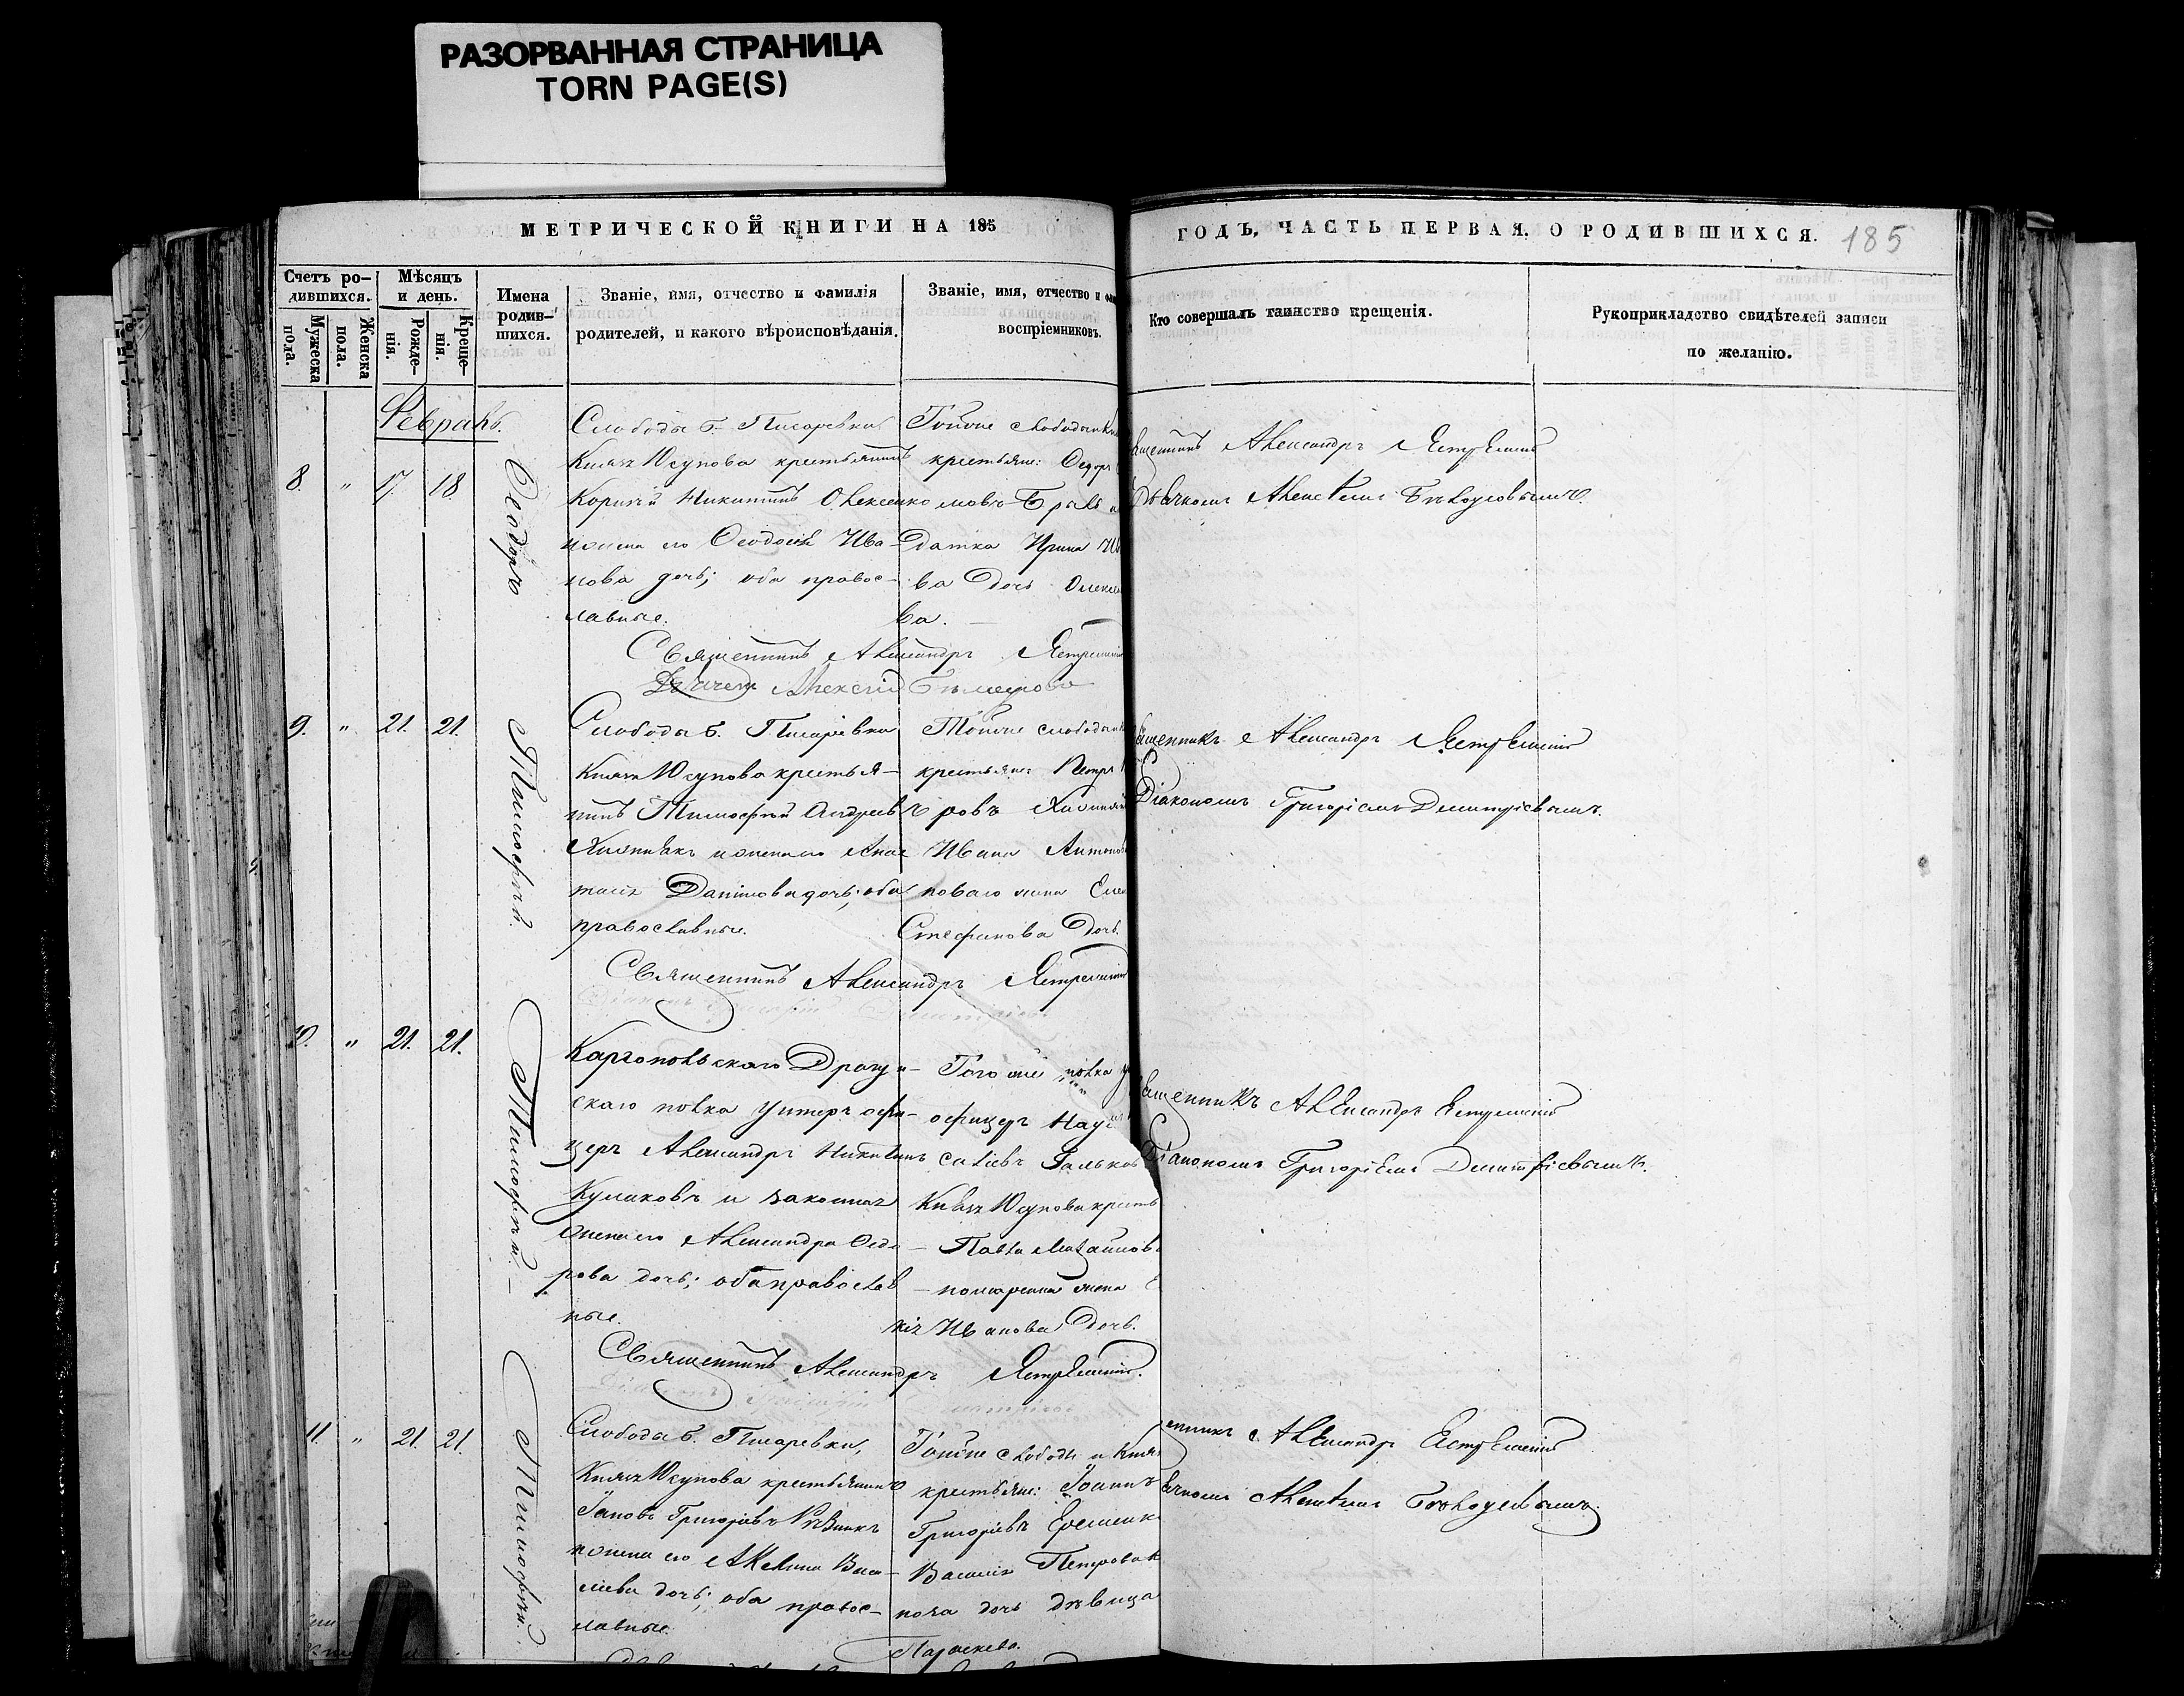 РАЗОРВАННАЯ СТРАНИЦА
TORN PAGE(S)
МЕТРИЧЕСКОЙ КНИГИ НА 185
ГОДЪ, ЧАСТЬ ПЕРВАЯ, О РОДИВШИХСЯ.
185
Счетъ ро-
дившихся.
Мужеска
пола.
Женска
пола.
Мѣсяцъ
и день.
Рожде-
нія.
Креще-
нія.
Имена
родив-
шихся.
Званіе, имя, отчество и фамилія
родителей, и какого вѣроисповѣданія.
Званіе, имя, отчество и фам
воспріемниковъ.
Кто совершалъ таинство крещенія.
Рукоприкладство свидѣтелей записи
по желанію.
Февраль.
8. " 17. 18
Ѳеодоръ
Слободы Б. Писаревки
Князя Юсупова крестьянинъ
Корнѣй Никитинъ Олексенко
и жена его Ѳеодосія Ива-
нова дочь; оба правос-
лавные.
Тойже слободы
крестьяне: Ѳедоръ
датка Ирина Ив
ва Дочь
ва.
Священникъ Александръ
щенникъ Александръ
Дьячкомъ Алексѣемъ Бѣлоусовымъ.
9. " 21. 21.
Тимоѳей.
Слободы Б. Писаревки
Князя Юсупова крестья-
нинъ Тимоѳей Андреевъ
и жена его Анас
тасія Данилова дочь; оба
православные.
Тойже слободы
крестьяне: Петръ
ровъ
Ивана Антоно
новаго жена Еле
Стефанова Дочь.
Священникъ Александръ
щенникъ Александръ
Діакономъ Григоріемъ Димитріевымъ.
10. " 21. 21.
Тимоѳей.
Каргопольскаго Драгун-
скаго полка унтеръ офи-
церъ Александръ Никитинъ
Куликовъ и законная
жена его Александра Ѳедо
рова дочь; оба православ
ные.
Того же полка у
офицеръ Наум
Князя Юсупова кресть
Павла Михайлов
жена
кія Иванова Дочь.
Священникъ Александръ
щенникъ Александръ
Діакономъ Григоріемъ Димитріевымъ.
11. " 21. 21.
Тимоѳей.
Слободы Б. Писаревки,
Князя Юсупова крестьянинъ
Григорьевъ
и жена его Акелина Васи-
лиева дочь; оба правос-
лавные.
Тойже слободы и Князя
крестьяне: Іоаннъ
Григорьевъ
Василія Петрова
нова дочь дѣвица
Параскева.
енникъ Александръ
Алексѣемъ Бѣлоусовымъ.